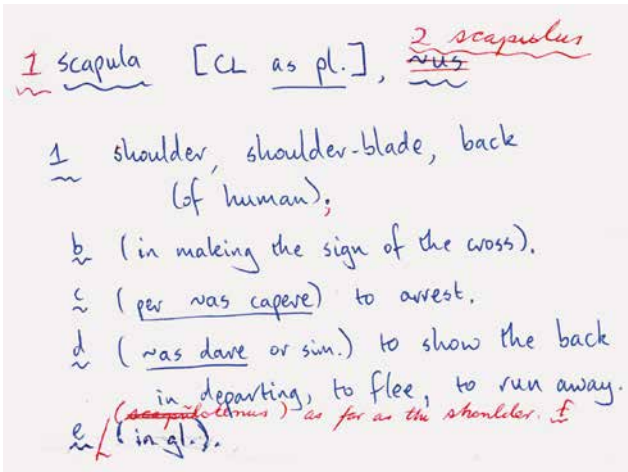 1 scapula [CL as pl.], ~us 2 scapulus
1 shoulder, shoulder-blade, back
(of human);
b (in making the sign of the cross).
c (per ~as capere) to arrest.
d (~as dare or sim.) to show the back
in departing, to flee, to run away.
(scapulotenus) as far as the shoulder. f
e (in gl.).